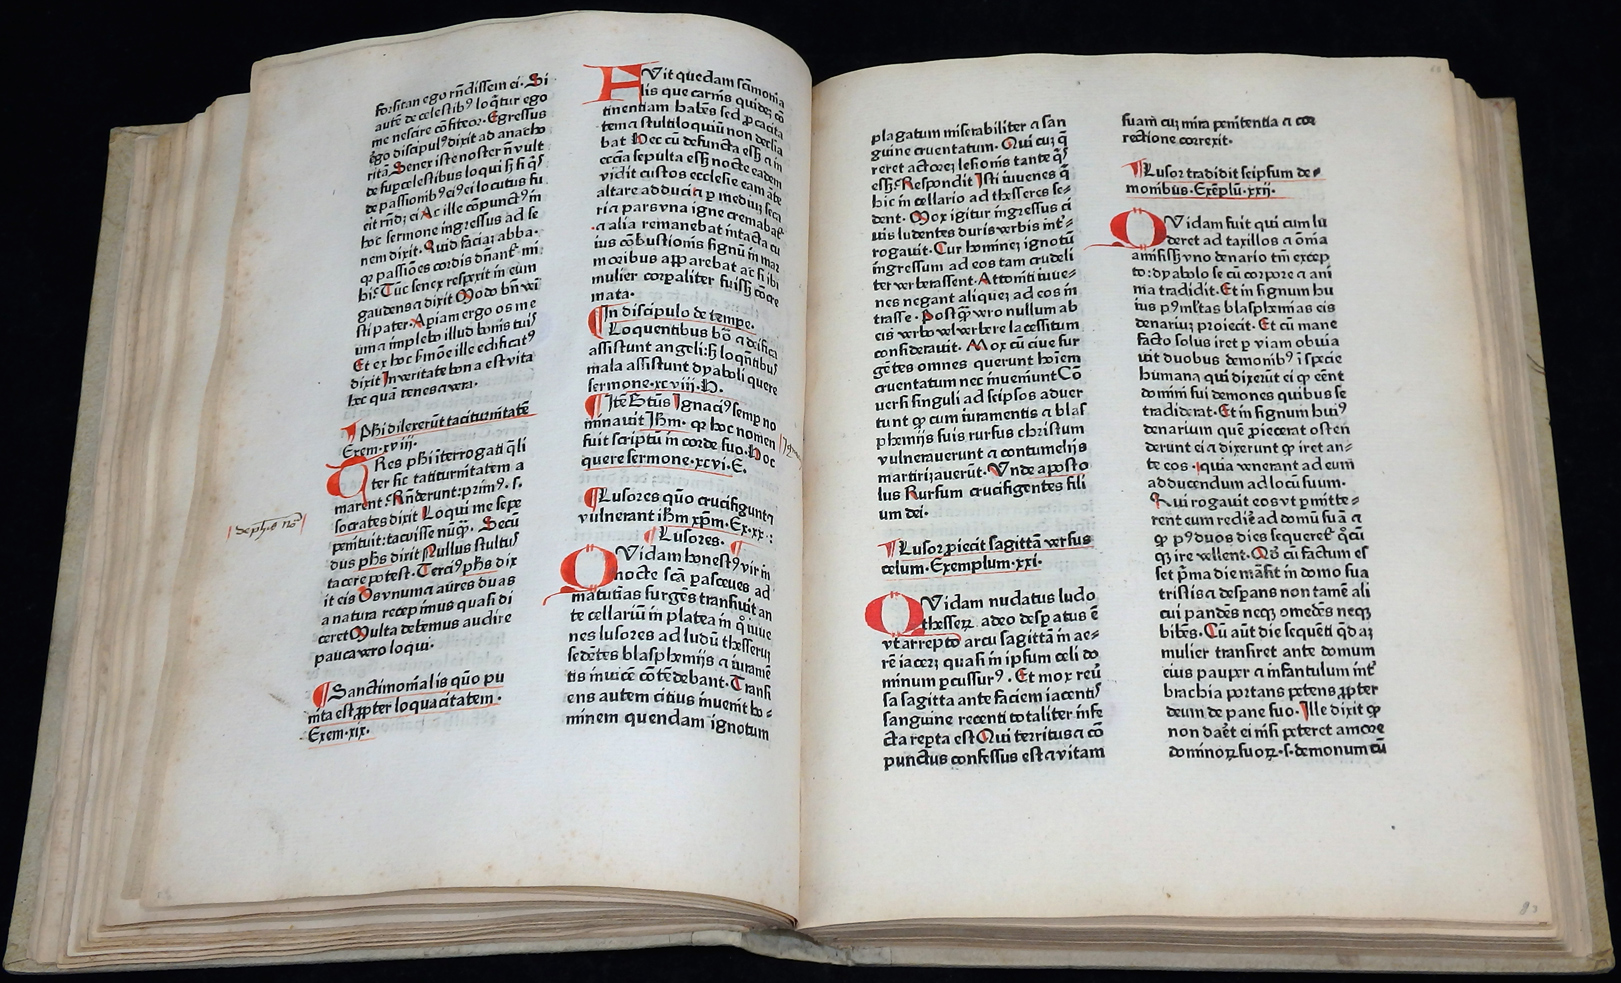 forsitan ego rñdissem ei. Si
autē de celestibꝰ loq̃tur ego
me nescire cōfiteor. Egressus
ego discipulꝰ dixit ad anacho
ritā. Senex iste noster ñ vult
de suꝑcelestibus loqui
de passionibꝰ
eit rñdꝫ ei Ac ille cōpunctꝰ in
hoc sermone ingressus ad se
nem dixit. Quid faciaꝫ abba.
qꝫ passiōes cordis dñant᷑ mi
hi. Tūc senex respexit in eum
gaudens ⁊ dixit Modo bñ vēi
sti pater. Aꝑiam ergo os me
um ⁊ implebo illud bonis tuis
Et ex hoc s̃mōe ille edificatꝰ
dixit In veritate bona est vita
hec quā tenes ⁊ vera.
¶ Phi dilexerūt taciturnitatē
Exem. xviij.
TRes phi ĩterrogati q̃li
ter sic taciturnitatem a
marent. Rñderunt: primꝰ. s.
socrates dixit Loqui me sepe
penituit: tacuisse nūqꝫ. Secū
dus phs dixit Nullus stultus
tacere potest. Terciꝰ phs dix
it eis Os vnum ⁊ aures duas
a natura recepimus quasi di
ceret Multa debemus audire
pauca vero loqui.
¶ Sanctimonialis quo pu
nita est ꝓpter loquacitatem.
Exem. xix.
FVit quedam sc̃imonia
lis que carnis quideꝫ cō
tinentiam habēs sed ꝓcacita
tem ⁊ stultiloquiū non declia
bat Hec cū defuncta essꝫ ⁊ in
ecc̃ia sepulta essꝫ nocte eadem
vidit custos ecclesie eam āte
altare adduci ⁊ ꝑ mediuꝫ seca
ri ⁊ pars vna igne cremabat᷑
⁊ alia remanebat intacta cu
ius cōbustionis signū in mar
moribus apparebat ac si ibi
mulier corꝑaliter fuissꝫ cōcre
mata.
¶ In discipulo de tempe.
Loquentibus bō ⁊ deifica
assistunt angeli: loq̃ntibus
mala assistunt dyaboli quere
sermone. xcviij. H.
¶ Itē Sctūs Ignaciꝰ semp no
minauit Ihm. qꝫ hoc nomen
fuit scriptū in corde suo. Hoc
quere sermone. xcvi. E.
¶ Lusores quo crucifigunt ⁊
vulnerant ihm xp̃m. Ex. xx.:
¶ Lusores. ¶
QVidam honestꝰ vir in
nocte scā pasceues ad
matutias surgēs transiuit an
te cellariū in platea in q̃ iuue
nes lusores ad ludū thesserū
sedētes blasphemijs ⁊ iuramē
tis inuicē cōtēdebant. Transi
ens autem citius inuenit ho⸗
minem quendam ignotum
de phs no
plagatum miserabiliter ⁊ san
guine cruentatum. Qui cuꝫ q̃
reret actoreꝫ lesionis tante q̃s
essꝫ. Respondit Isti iuuenes q̃
hic in cellario ad thesseres se⸗
dent. Mox igitur ingressus ci
uis ludentes duris verbis inẗ⸗
rogauit. Cur homineꝫ ignotū
ingressum ad eos tam crudeli
ter verberassent. Attoniti iuue⸗
nes negant aliqueꝫ ad eos in
trasse. Postqꝫ vero nullum ab
eis verbo vel verbere lacessitum
considerauit. Mox cū ciue sur
gētes omnes querunt hoiem
cruentatum nec inueniunt Cō
uersi singuli ad seipsos aduer
tunt qꝫ cum iuramentis ⁊ blas
phemijs suis rursus christum
vulnerauerunt ⁊ contumelijs
martirizauerūt. Vnde aposto
lus Rursum crucifigentes fili
um dei.
¶ Lusor ꝓiecit sagittā versus
celum. Exemplum. xxi.
QVidam nudatus ludo
thesseꝝ adeo despatus ē
vt arrepto arcu sagittā in ae⸗
rē iaceꝫ quasi in ipsum celi do
minum ꝑcussurꝰ. Et mox reū
sa sagitta ante faciem iacentis
sanguine recenti totaliter infe
cta reꝑta est Qui territus ⁊ cō
punctus confessus est ⁊ vitam
suam cuꝫ mira penitentia ⁊ cor
rectione correxit.
¶ Lusor tradidit seipsum de⸗
monibus. Exēplū. xxij.
QVidam fuit qui cum lu
deret ad taxillos ⁊ oīa
amisissꝫ vno denario tm̃ excep
to: dyabolo se cū corpore ⁊ ani
ma tradidit. Et in signum hu
ius ꝑ m̃ltas blasphemias eis
denariū proiecit. Et cū mane
facto solus iret ꝑ viam obuia
uit duobus demonibꝰ ĩ specie
humana qui dixerūt ei qꝫ eēnt
domini sui demones quibus se
tradiderat. Et in signum huiꝰ
denarium quē ꝓiecerat osten
derunt ei ⁊ dixerunt qꝫ iret an⸗
te eos. quia venerant ad eum
adducendum ad locū suum.
Qui rogauit eos vt ꝑmitte⸗
rent eum redire ad domū suā ⁊
qꝫ pꝰ duos dies sequeret᷑ q̊cū
qꝫ ire vellent. Qd̃ cū factum es
set p̃ma die māsit in domo sua
tristis ⁊ despans non tamē ali
cui pandēs neqꝫ omedēs neqꝫ
bibēs. Cū aūt die sequēti q̃daꝫ
mulier transiret ante domum
eius pauper ⁊ infantulum int᷑
brachia portans petens ꝓpter
deum de pane suo. Ille dixit qꝫ
non daret ei nisi peteret amore
dominoꝝ suoꝝ. s. demonum cū
83